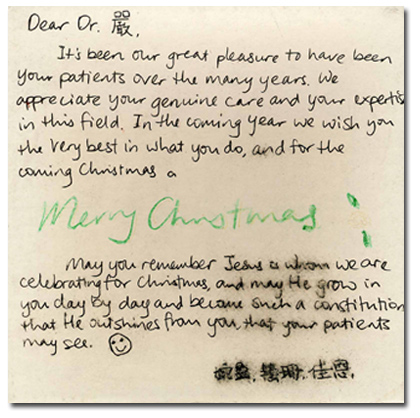 Dear Dr. 嚴,
It's been our great pleasure to have been
your patients over the many years. We
appreciate your genuine care and your expertise
in this field. In the coming year we wish you
the very best in what you do, and for the
coming Christmas a
Merry Christmas !
May you remember Jesus is whom we are
celebrating for Christmas, and may He grow in
you day by day and become such a constitution
that He outshines from you, that your patients
may see. ☺
佳恩.